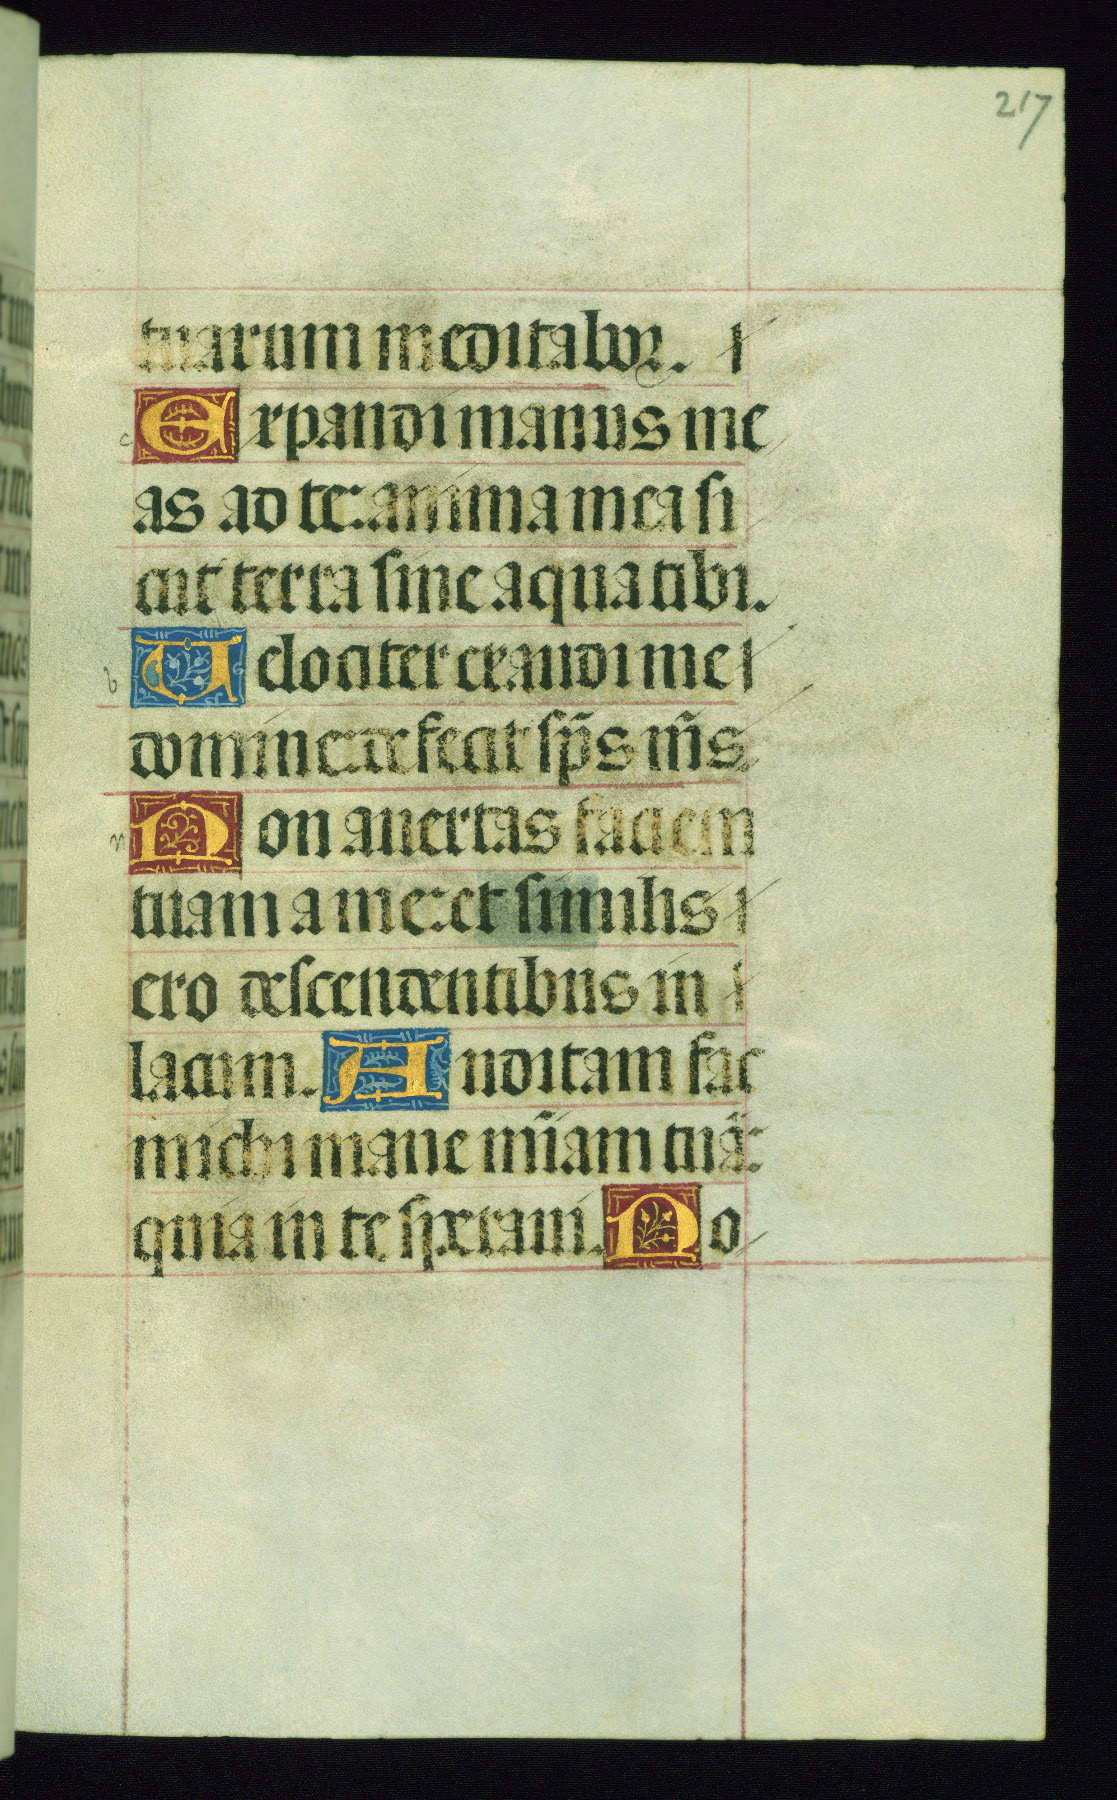 217
tuarum meditabor.
Expandi manus me
as ad te: anima mea si
cut terra sine aqua tibi.
c
Velociter exaudi me
b
domine: defecit sp̃s m̃s
Non auertas faciem
n
tuam a me: et similis
ero descendentibus in
lacum. Auditam fac
michi mane mĩam tuã:
quia in te speraui. No